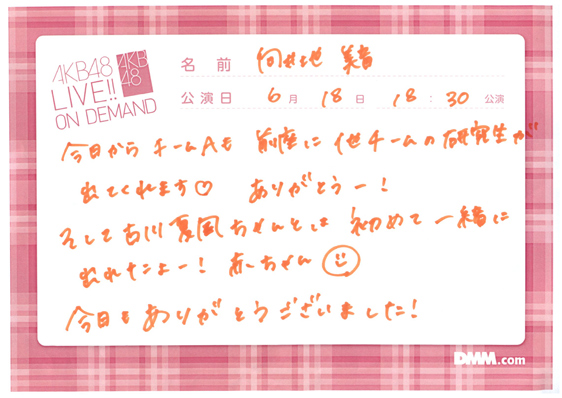 AKB48
LIVE!!
ON DEMAND
AKB
48
名前 向井地 美音
公演日 6月 18日 18:30 公演
今日から チームAも 前座に 他チームの研究生が
出てくれます♡ ありがとうー!
そして古川夏凪ちゃんとは 初めて一緒に
出れたよー! 赤ちゃん
今日もありがとうございました!
DMM.com